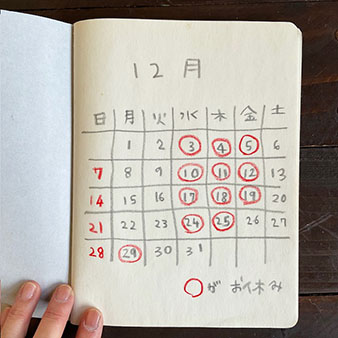 12月
日 月 火 水 木 金 土
1 2 3 4 5 6
7 8 9 10 11 12 13
14 15 16 17 18 19 20
21 22 23 24 25 26 27
28 29 30 31
○がお休み